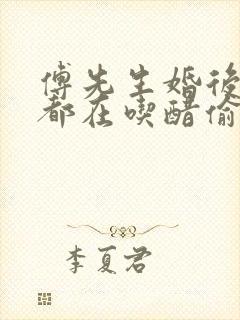 傅先生婚後
都在喫醋偷
李夏君